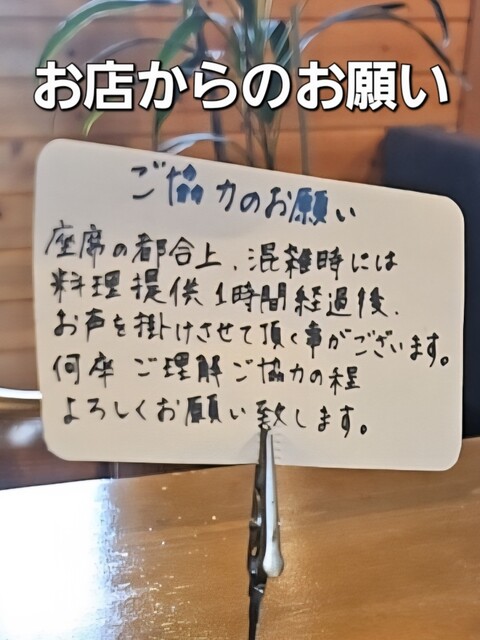 お店からのお願い
ご協力のお願い
座席の都合上、混雑時には
料理提供1時間経過後、
お声を掛けさせて頂く事がございます。
何卒ご理解ご協力の程
よろしくお願い致します。